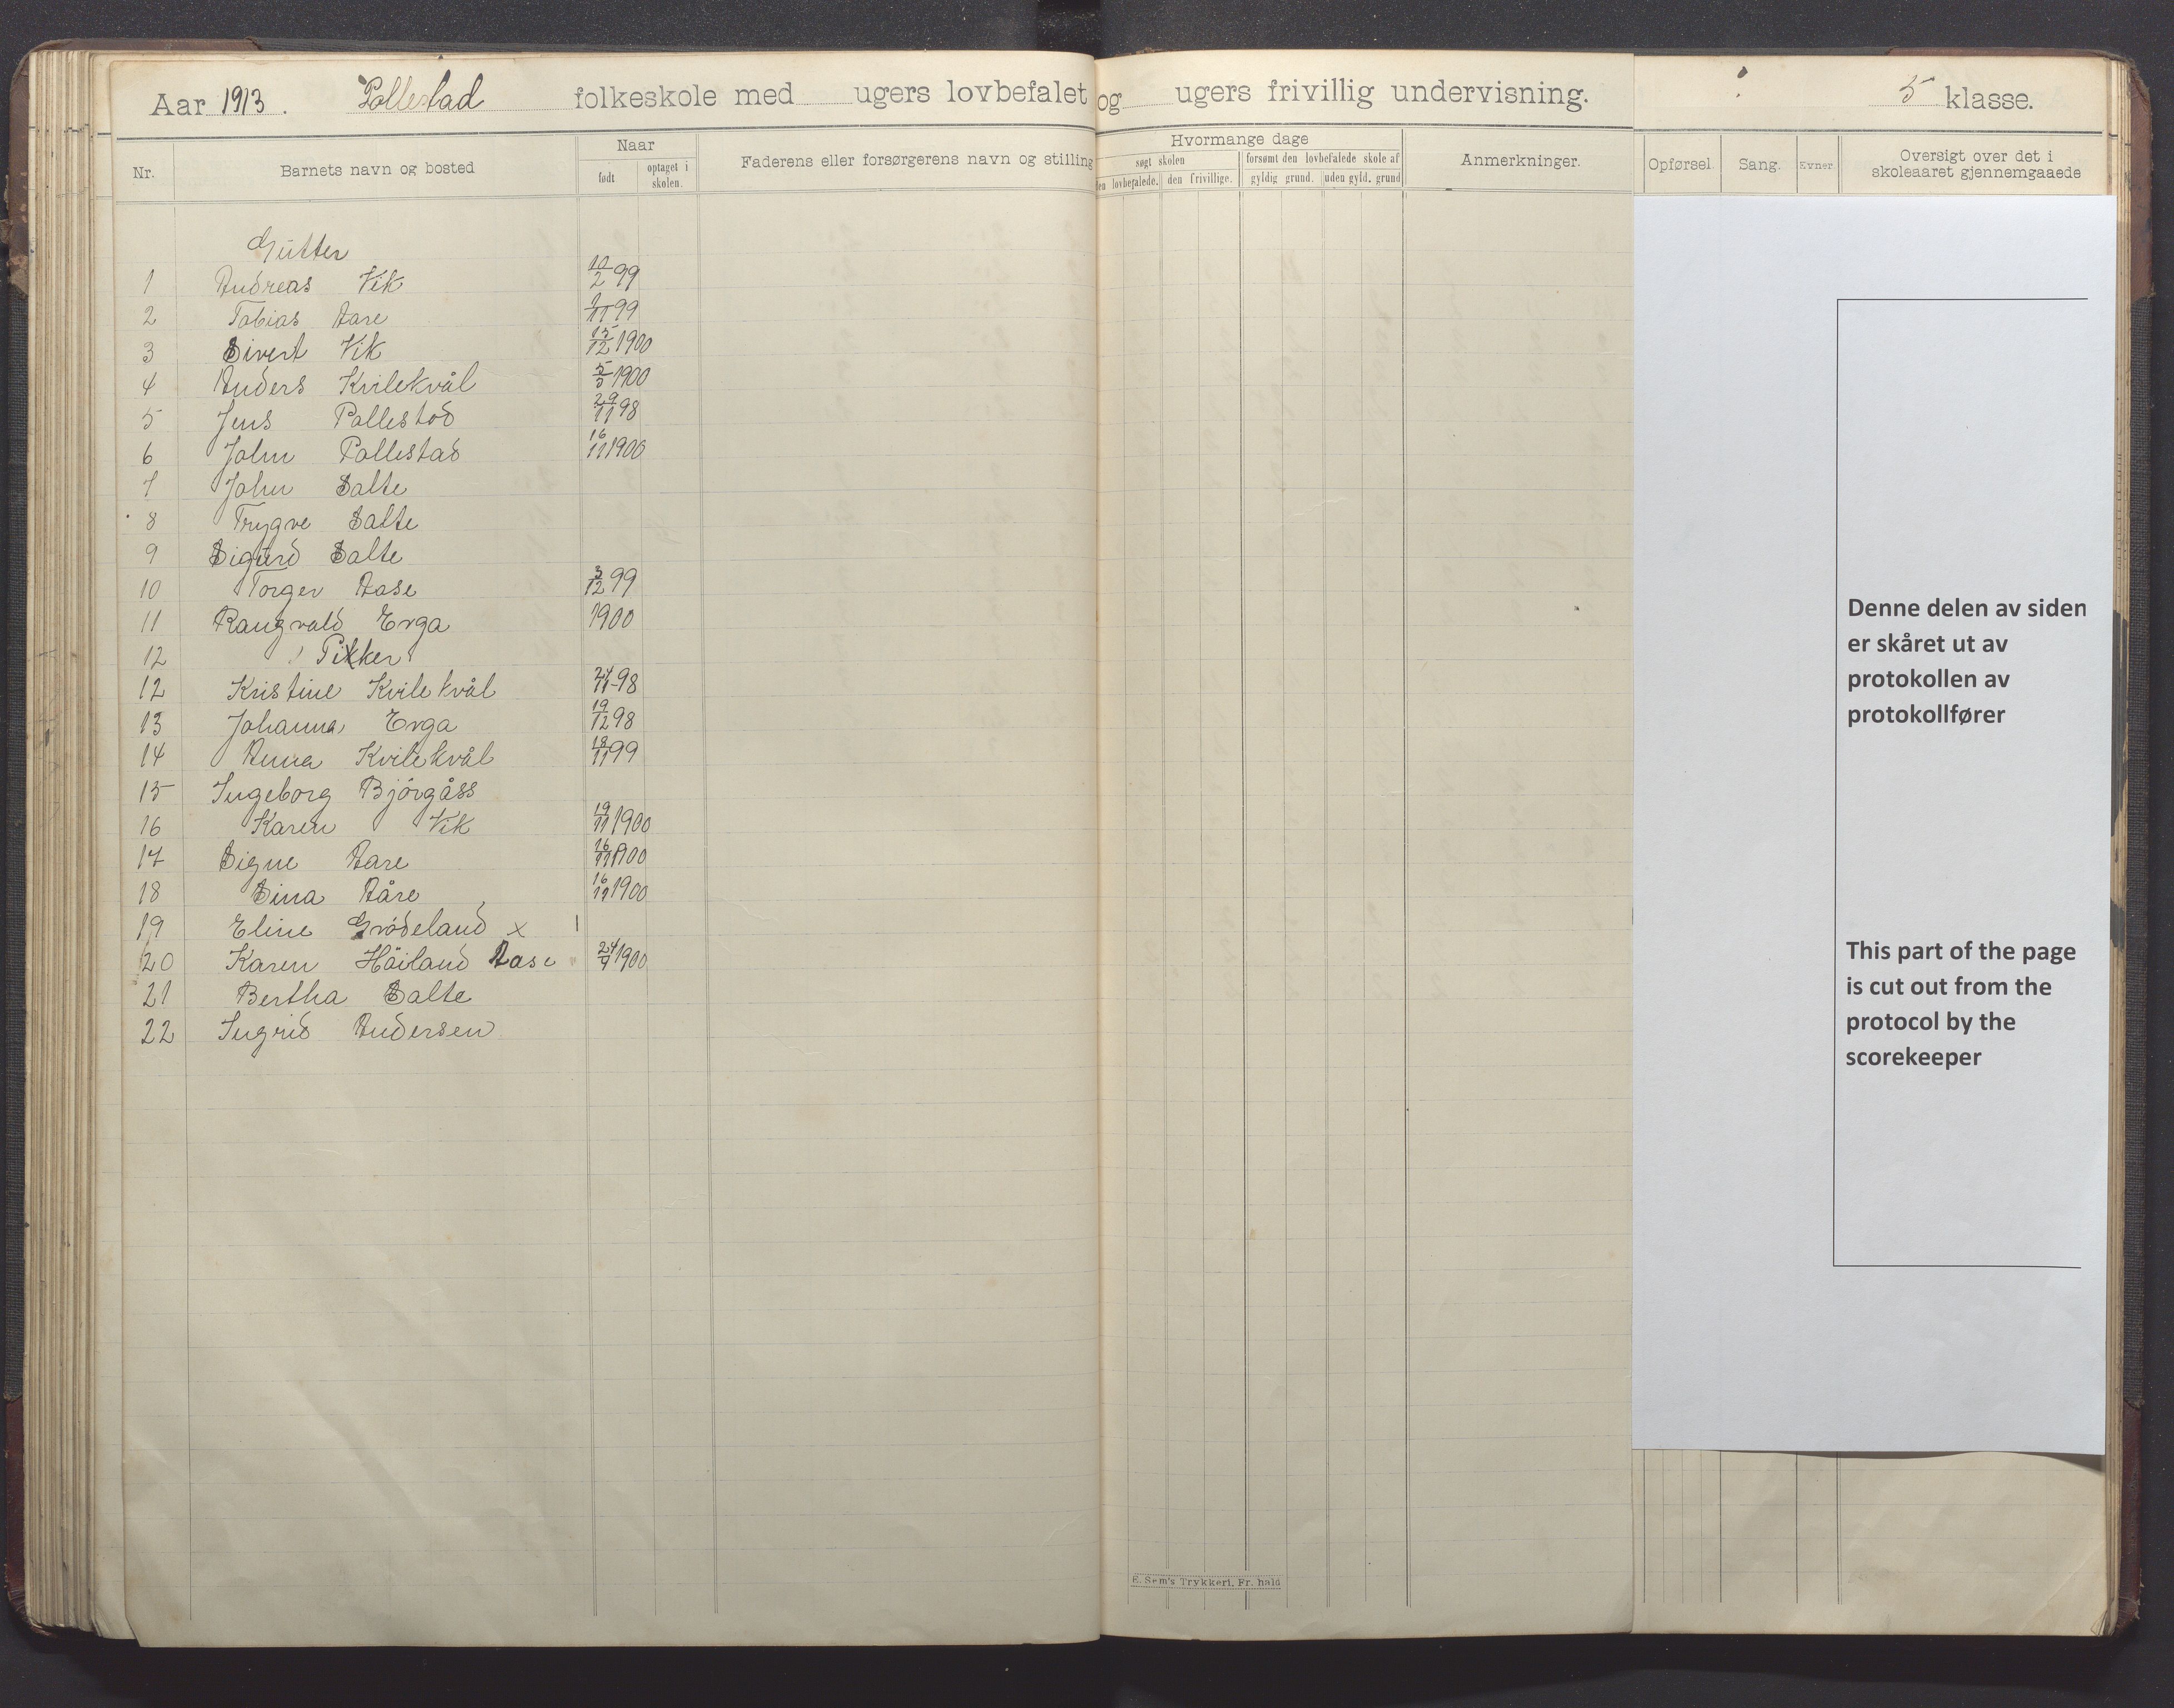 Aar 1913. Pollestad folkeskole med ugers lovbefalet og ugers frivillig undervisning. 5 klasse.
Nr. Barnets navn og bosted Naar født optaget i skolen. Faderens eller forsørgerens navn og stilling Hvormange dage søgt skolen den lovbefalede. den frivillige. forsømt den lovbefalede skole af gyldig grund. uden gyld. grund Anmerkninger. Opførsel. Sang. Evner. Oversigt over det i skoleaaret gjennemgaaede
Gutter
1 Andreas Vik 10/2 99
2 Tobias Aare /11 99
3 Sivert Vik 15/12 1900
4 Anders Kvilekvål 5/5 1900
5 Jens Pollestad 29/11 98
6 John Pollestad 16/11 1900
7 John Salte
8 Trygve Salte
9 Sigurd Salte
10 Torger Aase 3/12 99
11 Rangvald Erga 1900
12 Piker
12 Kristine Kvilekvål 24/11 98
13 Johanna Erga 19/12 98
14 Anna Kvilekvål 18/11 99
15 Ingeborg Bjórgåss
16 Karen Vik 19/11 1900
17 Signe Aare 16/11 1900
18 Sina Aåre 16/11 1900
19 Eline Grödeland x
20 Karen Höiland Aase 24/9 1900
21 Bertha Salte
22 Ingrid Andersen
E. Sem's Trykkeri, Fr. hald
Denne delen av siden
er skåret ut av
protokollen av
protokollfører
This part of the page
is cut out from the
protocol by the
scorekeeper